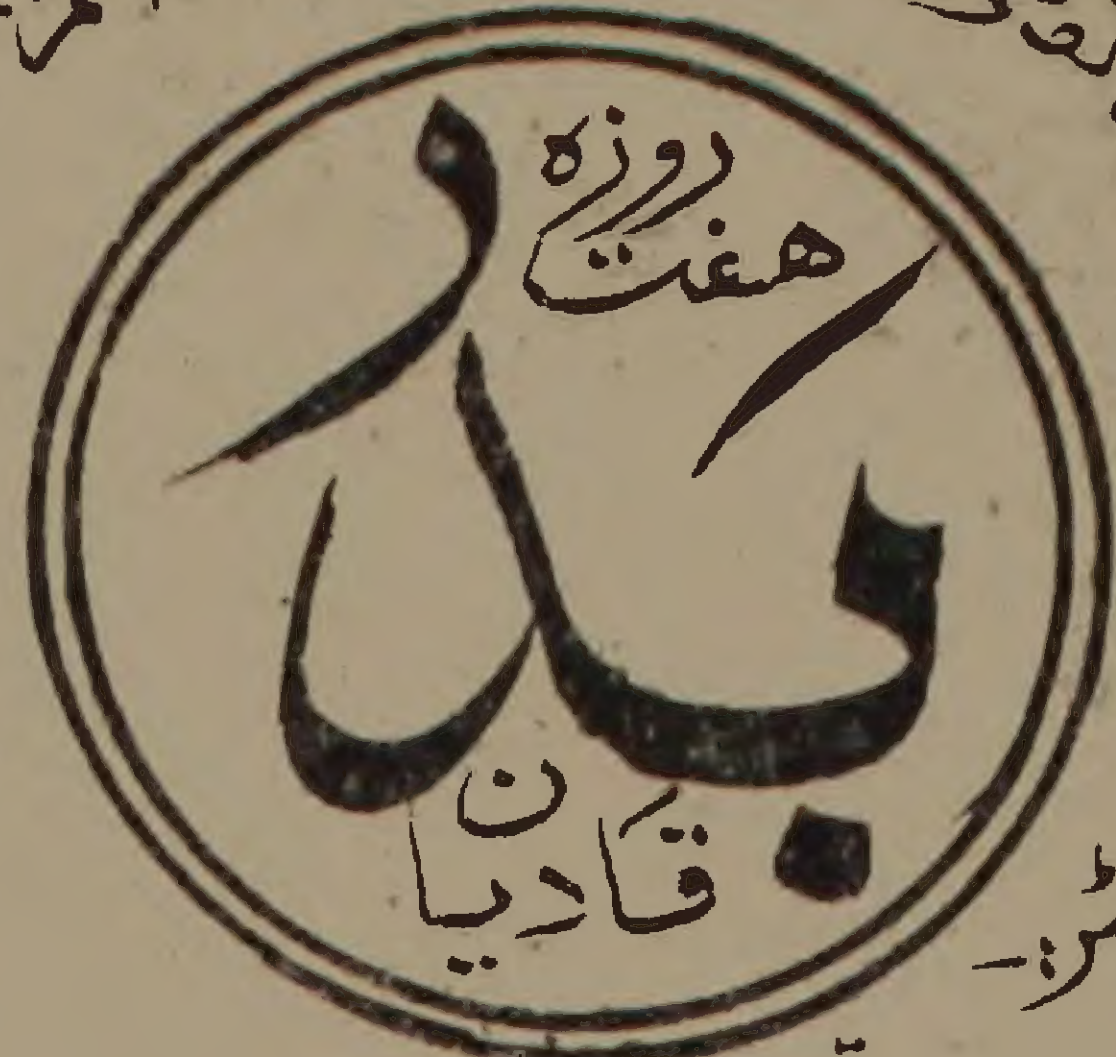 هفت روزه
بدر
قادیان